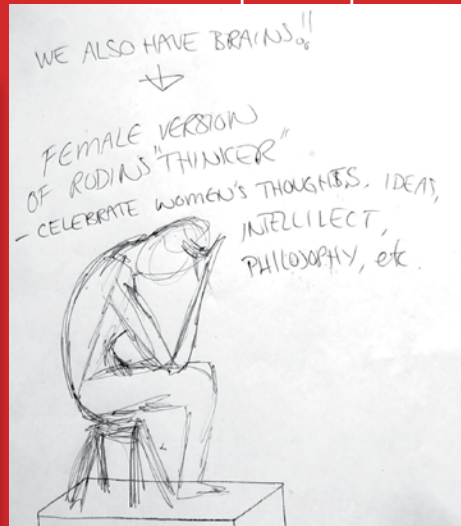 WE ALSO HAVE BRAINS!!
FEMALE VERSION
OF RODINS "THINKER"
- CELEBRATE WOMEN'S THOUGHTS, IDEAS,
INTELLILECT,
PHILOSOPHY, etc.